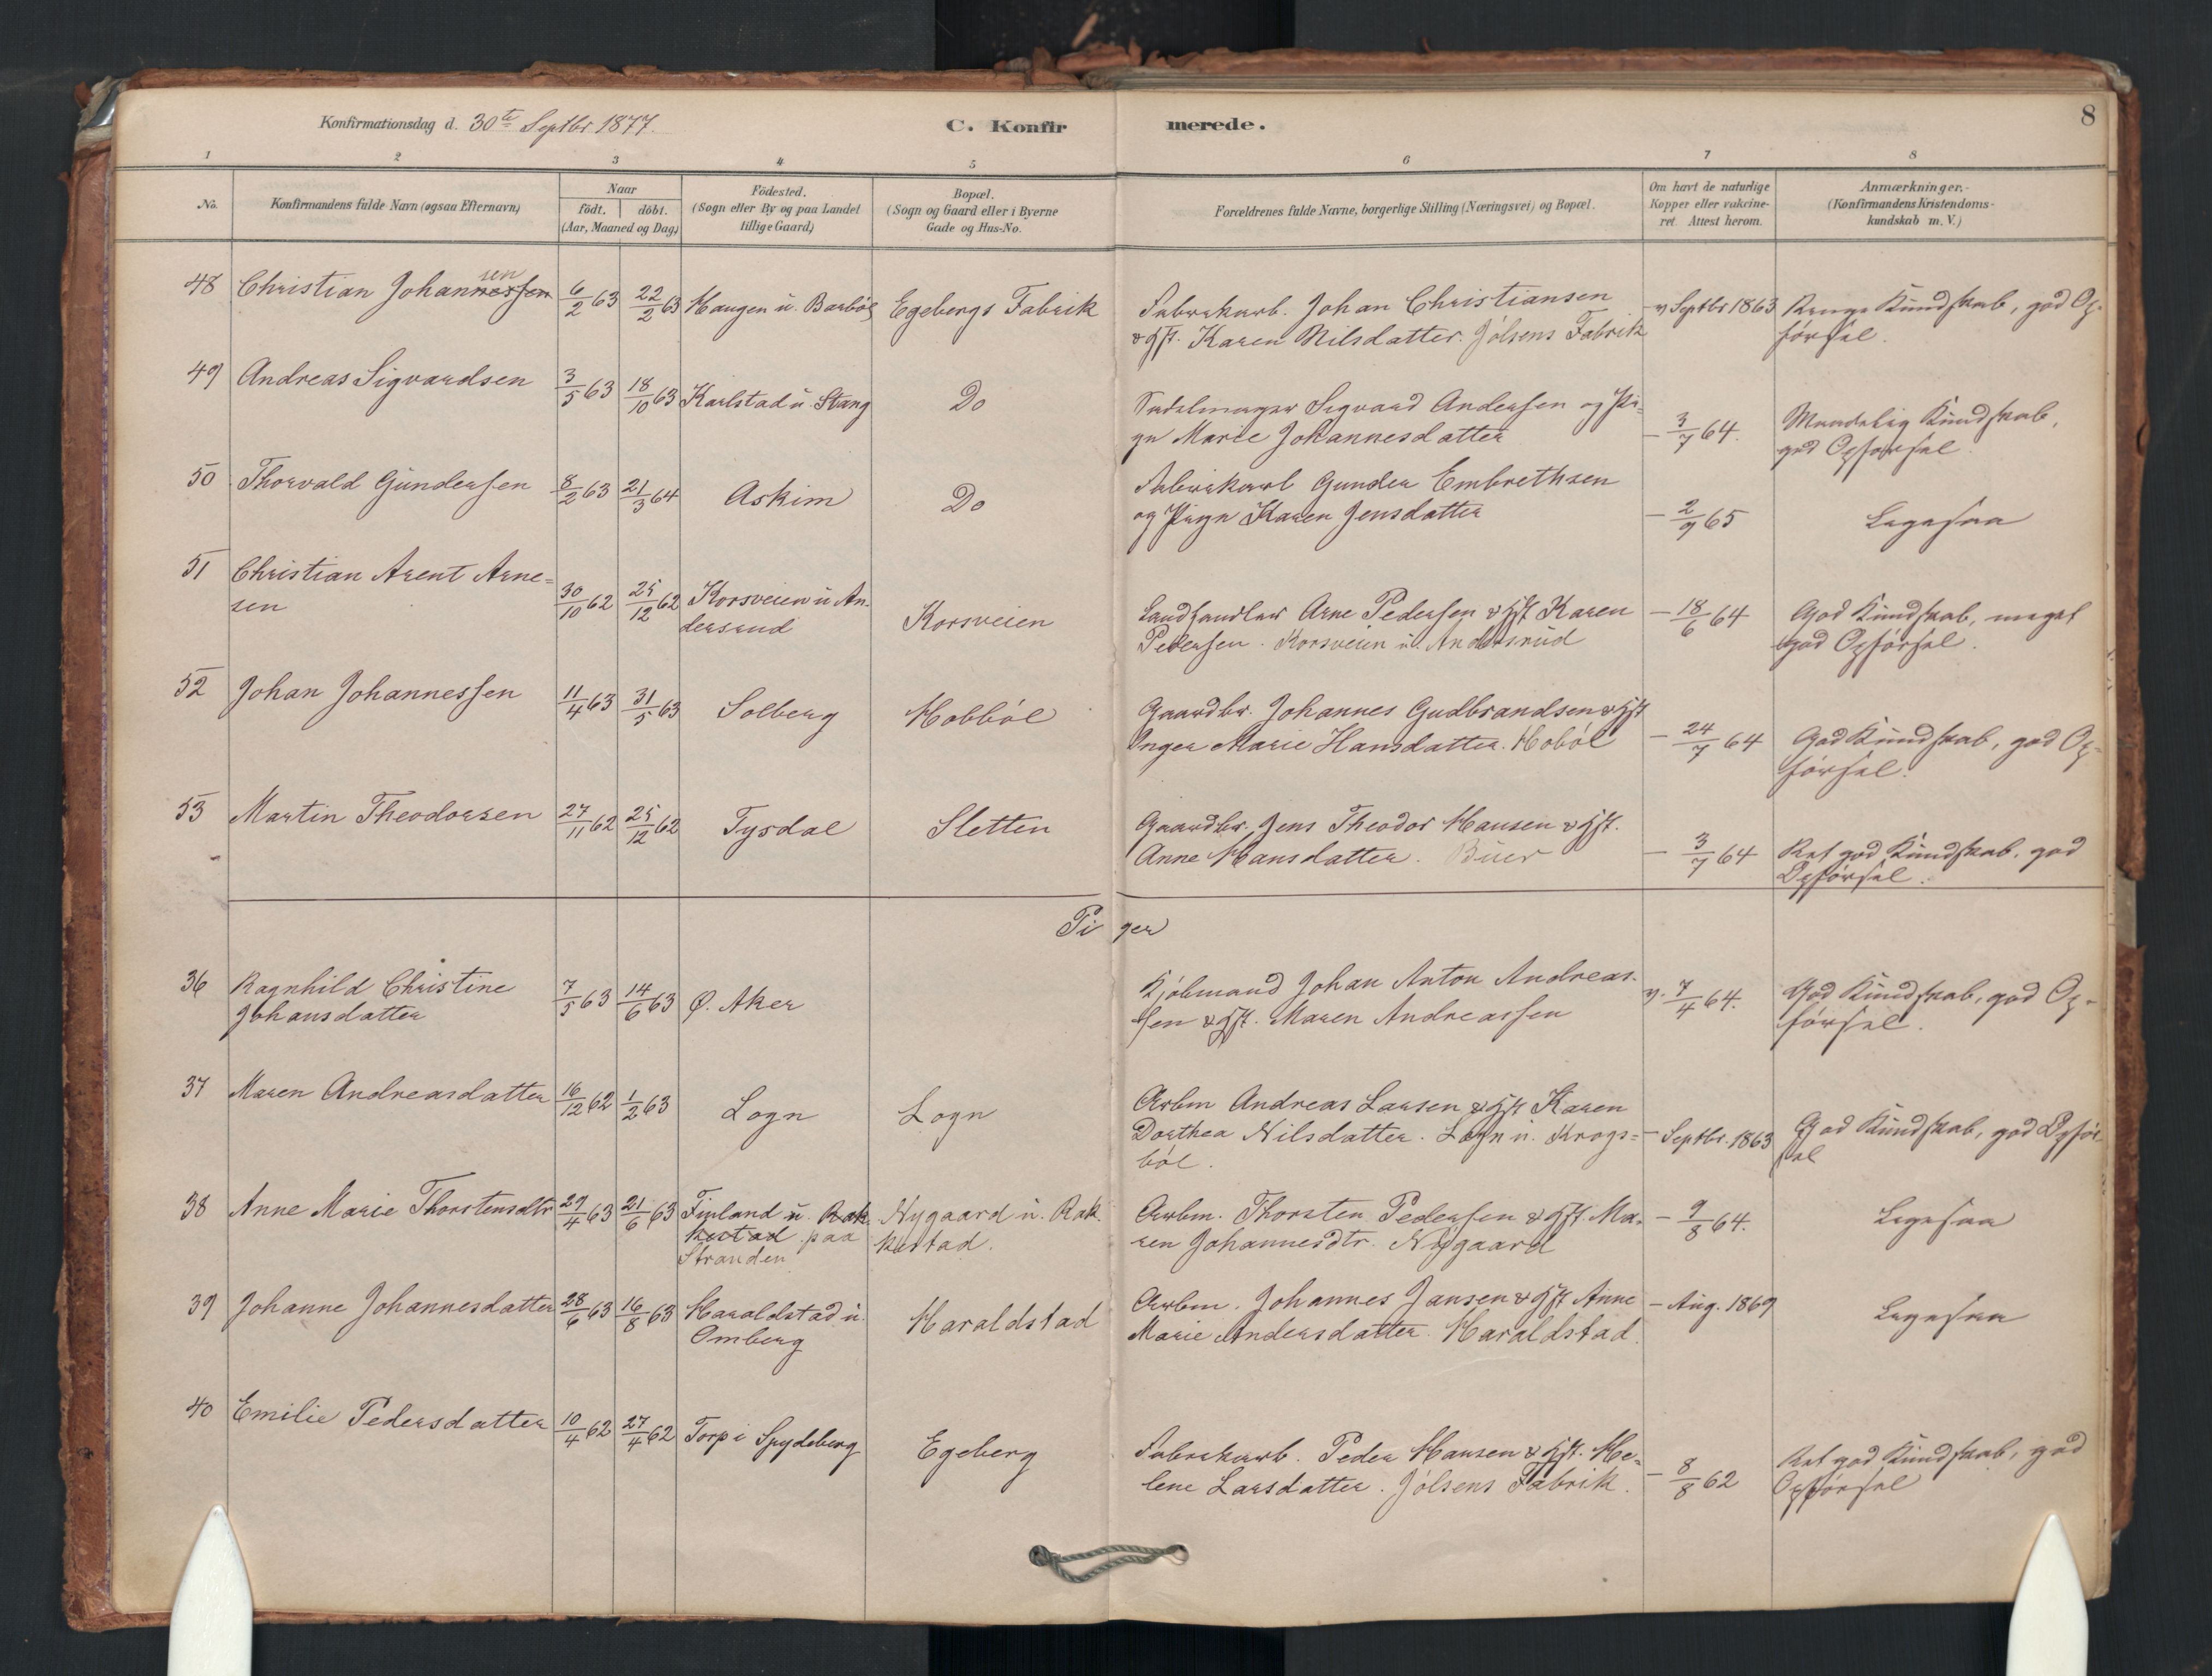 Konfirmationsdag d. 30te Septbr 1877.
C. Konfirmerede.
8
1 2 3 4 5 6 7 8
No.
Konfirmandens fulde Navn (ogsaa Efternavn)
Naar
födt. döbt.
(Aar, Maaned og Dag)
Födested.
(Sogn eller By og paa Landet
tillige Gaard)
Bopæl.
(Sogn og Gaard eller i Byerne
Gade og Hus-No.
Forældrenes fulde Navne, borgerlige Stilling (Næringsvei) og Bopæl.
Om havt de naturlige
Kopper eller vakcine-
ret. Attest herom.
Anmærkninger.
(Konfirmandens Kristendoms-
kundskab m. V.)
48 Christian Johannessen sen 6/2 63 22/2 63 Haugen u. Barbøl Egebergs Fabrik Fabrikarb. Johan Christiansen v Septbr 1863 Kundskab, god Op-
& Hst. Karen Nilsdatter. Jølsens Fabrik førsel.
49 Andreas Sigvardsen 3/5 63 18/10 63 Karlstad u. Stang Do Sadelmager Sigvard Andersen og Pi-
ge Marie Johannesdatter - 3/7 64. Maadelig Kundskab,
god Opførsel.
50 Thorvald Gundersen 8/2 63 21/3 64 Askim Do Fabrikarb Gunder Embrethsen
og Pige Karen Jensdatter - 2/9 65 Ligesaa
51 Christian Arent Arne=
sen 30/10 62 25/12 62 Korsveien u An-
dersrud Korsveien Landhandler Arne Pedersen & Hst Karen - 18/6 64 God Kundskab, meget
Pedersen. Korsveien u. Andersrud god Opførsel.
52 Johan Johannessen 11/4 63 31/5 63 Solberg Hobbøl Gaardbr. Johannes Gudbrandsen & Hst
Inger Marie Hansdatter. Hobøl - 24/7 64 God Kundskab, god Op-
førsel.
53 Martin Theodorsen 27/11 62 25/12 62 Tysdal Sletten Gaardbr. Jens Theodor Hansen & Hst.
Anne Hansdatter. Buer - 3/7 64 Ret god Kundskab, god
Opførsel.
Piger
36 Ragnhild Christine
Johansdatter 7/5 63 14/6 63 Ø. Aker Kjøbmand Johan Anton Andreas-
sen & Hst. Maren Andreassen v. 7/4 64. God Kundskab, god Op-
førsel.
37 Maren Andreasdatter 16/12 62 1/2 63 Logn Logn Arbm Andreas Larsen & Hst Karen
Dorthea Nilsdatter. Logn u. Krogs= - Septbr. 1863 God Kundskab, god Opfør
bøl. sel
38 Anne Marie Thorstensdtr 29/4 63 21/6 63 Finland u. Rak
kestad paa
Stranden Nygaard u. Rak
kestad. Arbm. Thorsten Pedersen & Hst. Ma-
ren Johannesdtr. Nygaard - 9/8 64. Ligesaa
39 Johanne Johannesdatter 28/6 63 16/8 63 Haraldstad u.
Omberg Haraldstad Arbm. Johannes Jansen & Hst Anne
Marie Andersdatter. Haraldstad. - Aug. 1869 Ligesaa
40 Emilie Pedersdatter 10/4 62 27/4 62 Torp i Spydeberg Egeberg Fabrikarb. Peder Hansen & Hst. He-
lene Larsdatter. Jølsens Fabrik. - 8/8 62 Ret god Kundskab, god
Opførsel